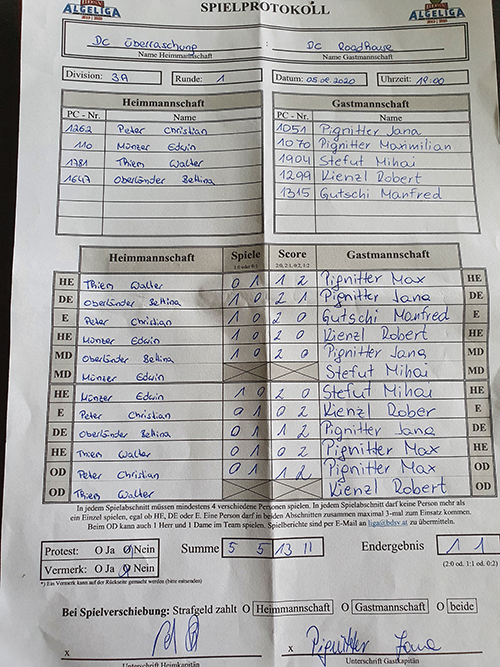 ALGELIGA SPIELPROTOKOLL ALGELIGA
DC Überraschung : DC Roadhouse
Name Heimmannschaft Name Gastmannschaft
Division: 3A Runde: 1 Datum: 05.08.2020 Uhrzeit: 19:00
Heimmannschaft Gastmannschaft
PC - Nr. Name PC - Nr. Name
1262 Peter Christian 1051 Pignitter Jana
110 Münzer Edwin 1070 Pignitter Maximilian
1781 Thiem Walter 1904 Stefut Mihai
1647 Oberländer Bettina 1299 Kienzl Robert
1315 Gutschi Manfred
Heimmannschaft Spiele Score Gastmannschaft
1:0 oder 0:1 2:0, 2:1, 0:2, 1:2
HE Thiem Walter 0 1 1 2 Pignitter Max HE
DE Oberländer Bettina 1 0 2 1 Pignitter Jana DE
E Peter Christian 1 0 2 0 Gutschi Manfred E
HE Münzer Edwin 1 0 2 0 Kienzl Robert HE
MD Oberländer Bettina 1 0 2 0 Pignitter Jana MD
MD Münzer Edwin Stefut Mihai MD
HE Münzer Edwin 1 0 2 0 Stefut Mihai HE
E Peter Christian 0 1 0 2 Kienzl Rober E
DE Oberländer Bettina 0 1 1 2 Pignitter Jana DE
HE Thiem Walter 0 1 0 2 Pignitter Max HE
OD Peter Christian 0 1 1 2 Pignitter Max OD
OD Thiem Walter Kienzl Robert OD
In jedem Spielabschnitt müssen mindestens 4 verschiedene Personen spielen. In jedem Spielabschnitt darf keine Person mehr als
ein Einzel spielen, egal ob HE, DE oder E. Eine Person darf in beiden Abschnitten zusammen maximal 3-mal zum Einsatz kommen.
Beim OD kann auch 1 Herr und 1 Dame im Team spielen. Spielberichte sind per E-Mail an liga@bdsv.at zu übermitteln.
Protest: O Ja O Nein Summe 5 5 13 11 Endergebnis 1 1
Vermerk: O Ja O Nein (2:0 od. 1:1 od. 0:2)
*) Ein Vermerk kann auf der Rückseite gemacht werden (bitte ankreuzen)
Bei Spielverschiebung: Strafgeld zahlt O Heimmannschaft O Gastmannschaft O beide
x x Pignitter Jana
Unterschrift Heimkapitän Unterschrift Gastkapitän